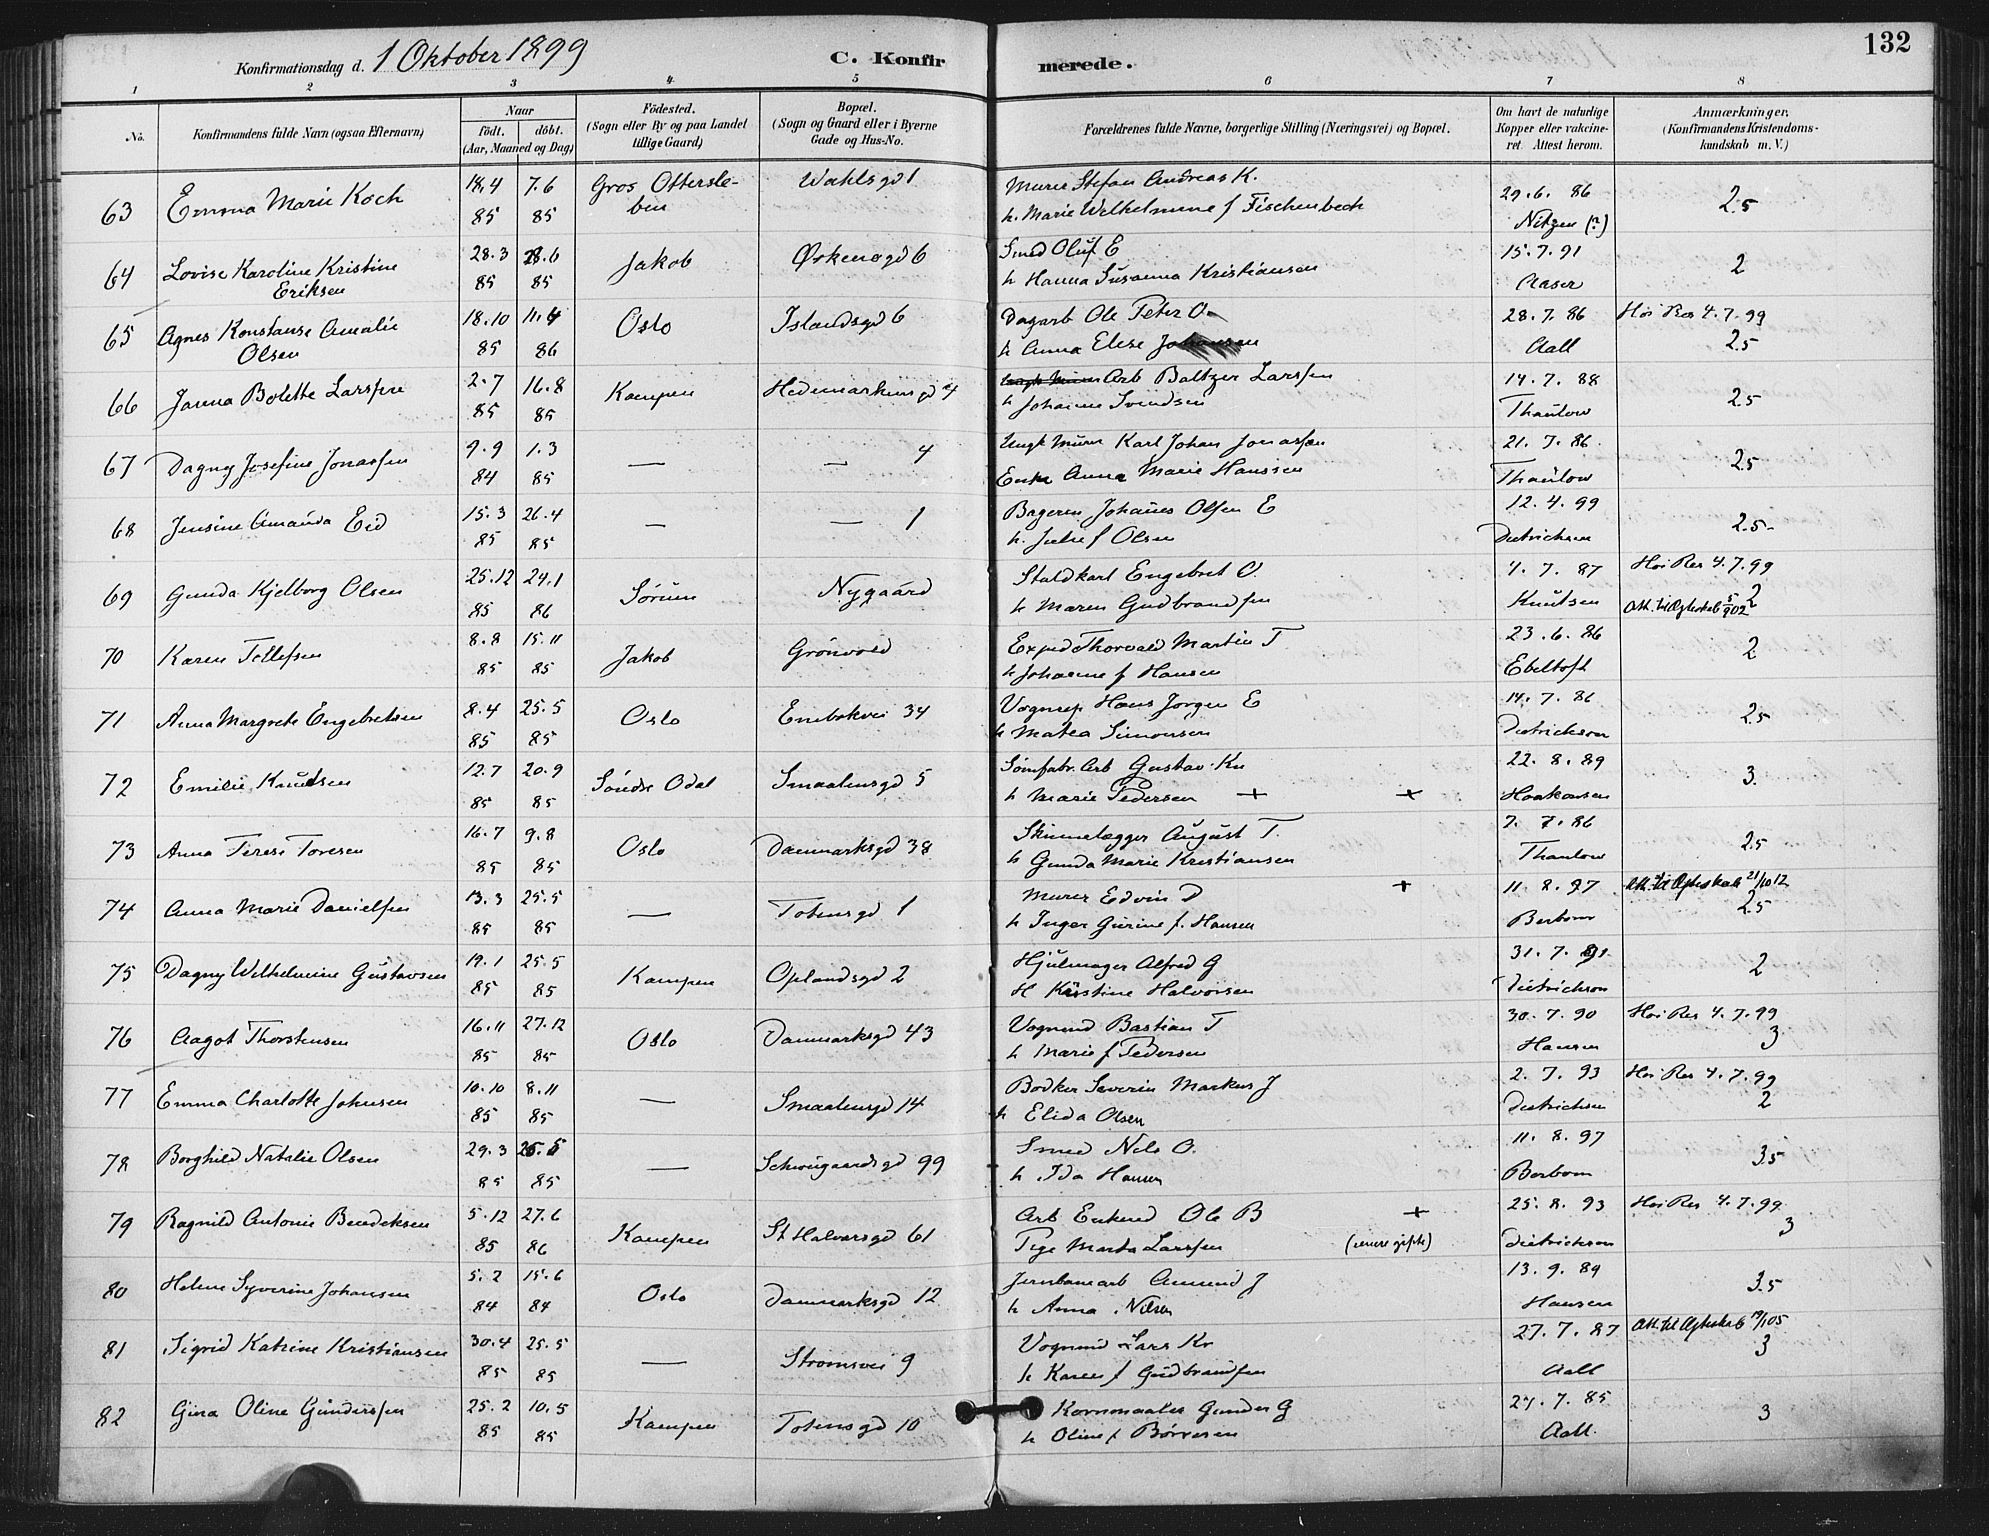 Konfirmationsdag d. 1 Oktober 1899 C. Konfirmerede. 132
1 2 3 4 5 6 7 8
No. Konfirmandens fulde Navn (ogsaa Efternavn) Naar födt. döbt. (Aar, Maaned og Dag) Födested. (Sogn eller By og paa Landet tillige Gaard) Bopæl. (Sogn og Gaard eller i Byerne Gade og Hus-No. Forældrenes fulde Navne, borgerlige Stilling (Næringsvei) og Bopæl. Om havt de naturlige Kopper eller vakcineret. Attest herom. Anmærkninger. (Konfirmandens Kristendomskundskab m. V.)
63 Emma Marie Koch 18.4 7.6 Gros Ottersle- Wahlsgd 1 Murer Stefan Andreas K. 29.6.86 2.5
85 85 ben h. Marie Welhelmine f Fischenbeck Nitzen (?)
64 Lovise Karoline Kristine 28.3 28.6 Jakob Smed Oluf E 15.7.91 2
Eriksen 85 85 h Hanna Susanna Kristiansen Aaser
65 Agnes Konstanse Amalie 18.10 11.4 Oslo Islandsgd 6 Dagarb Ole Peter O. 28.7.86 Hoi Res 4.7.99
Olsen 85 86 h Anna Elise Johansen Aall 2.5
66 Janna Bolette Larssen 2.7 16.8 Kampen Hedemarkensgd 4 Arb Baltzer Larssen 14.7.88 2.5
85 85 h Johanne Svendsen Thaulow
67 Dagny Josefine Jonassen 9.9 1.3 — — 4 Ungk Murer Karl Johan Jonassen 21.7.86 2.5
84 85 Enke Anna Marie Hanssen Thaulow
68 Jensine Amanda Eid 15.3 26.4 — — 1 Bageren Johanes Olsen E 12.4.99 2.5
85 85 h. Julie f Olsen Dietrichsen
69 Gunda Kjelborg Olsen 25.12 24.1 Sörum Nygaard Staldkarl Engebret O. 4.7.87 Hoi Res 4.7.99
85 86 h Maren Gudbrandsen Knutsen Att. til Ægteskab 5/9 02 2
70 Karen Tellefsen 8.8 15.11 Jakob Grönvold Exped Thorvald Martin T 23.6.86 2
85 85 h Johanne f Hansen Ebeltoft
71 Anna Margrete Engebretsen 8.4 25.5 Oslo Enebakvei 34 Vognrep Hans Jorgen E 14.7.86 2.5
85 85 h Matea Simonsen Dietrichson
72 Emilie Knudsen 12.7 20.9 Söndre Odal Smaalensgd 5 Sömfabr. Arb Gustav Kn 22.8.89 3.
85 85 h Marie Pedersen + + Haakonsen
73 Anna Terese Toresen 16.7 9.8 Oslo Danmarksgd 38 Skinnelægger August T. 7.7.86 2.5
85 85 h Gunda Marie Kristiansen Thaulow
74 Anna Marie Danielsen 13.3 25.5 — Totensgd 1 Murer Edvin D + 11.8.97 Att. til Ægteskab 21/10 12
85 85 h Inger Gurine f. Hansen Berbom 2.5
75 Dagny Wilhelmine Gustavsen 19.1 25.5 Kampen Oplandsgd 2 Hjulmager Alfred G 31.7.91 2
85 85 H Kristine Halvorsen Dietrichson
76 Aagot Thorstensen 16.11 27.12 Oslo Danmarksgd 43 Vognmd Bastian T 30.7.90 Hoi Res 4.7.99
85 85 h Marie f Pedersen Hansen 3
77 Emma Charlotte Johnsen 10.10 8.11 — Smaalensgd 14 Bodker Severin Markus J 2.7.93 Hoi Res 4.7.99
85 85 h Elida Olsen Dietrichsen 2
78 Borghild Natalie Olsen 29.3 25.5 — Schweigaardsgd 99 Smed Nils O. 11.8.97 3.5
85 85 h Ida Hansen Berbom
79 Ragnild Antonie Bendeksen 5.12 27.6 Kampen St Halvarsgd 61 Arb Enkemd Ole B + 25.8.93 Hoi Res 4.7.99
85 86 Pige Marta Larssen (senere gifte) Dietrichson 3
80 Helene Syverine Johansen 5.2 15.6 Oslo Danmarksgd 12 Jernbanearb Amund J 13.9.89 3.5
84 84 h Anna Nilsen Hansen
81 Sigrid Katrine Kristiansen 30.4 25.5 — Stromsvei 9 Vognmd Lars Kr 27.7.87 Att. til Ægteskab 19/1 05
85 85 h Karen f Gudbrandsen Aall 3
82 Gina Oline Gunderssen 25.2 10.5 Kampen Totensgd 10 Kornmaaler Gunder G 27.7.85 3
85 85 h Oline f Börresen Aall.